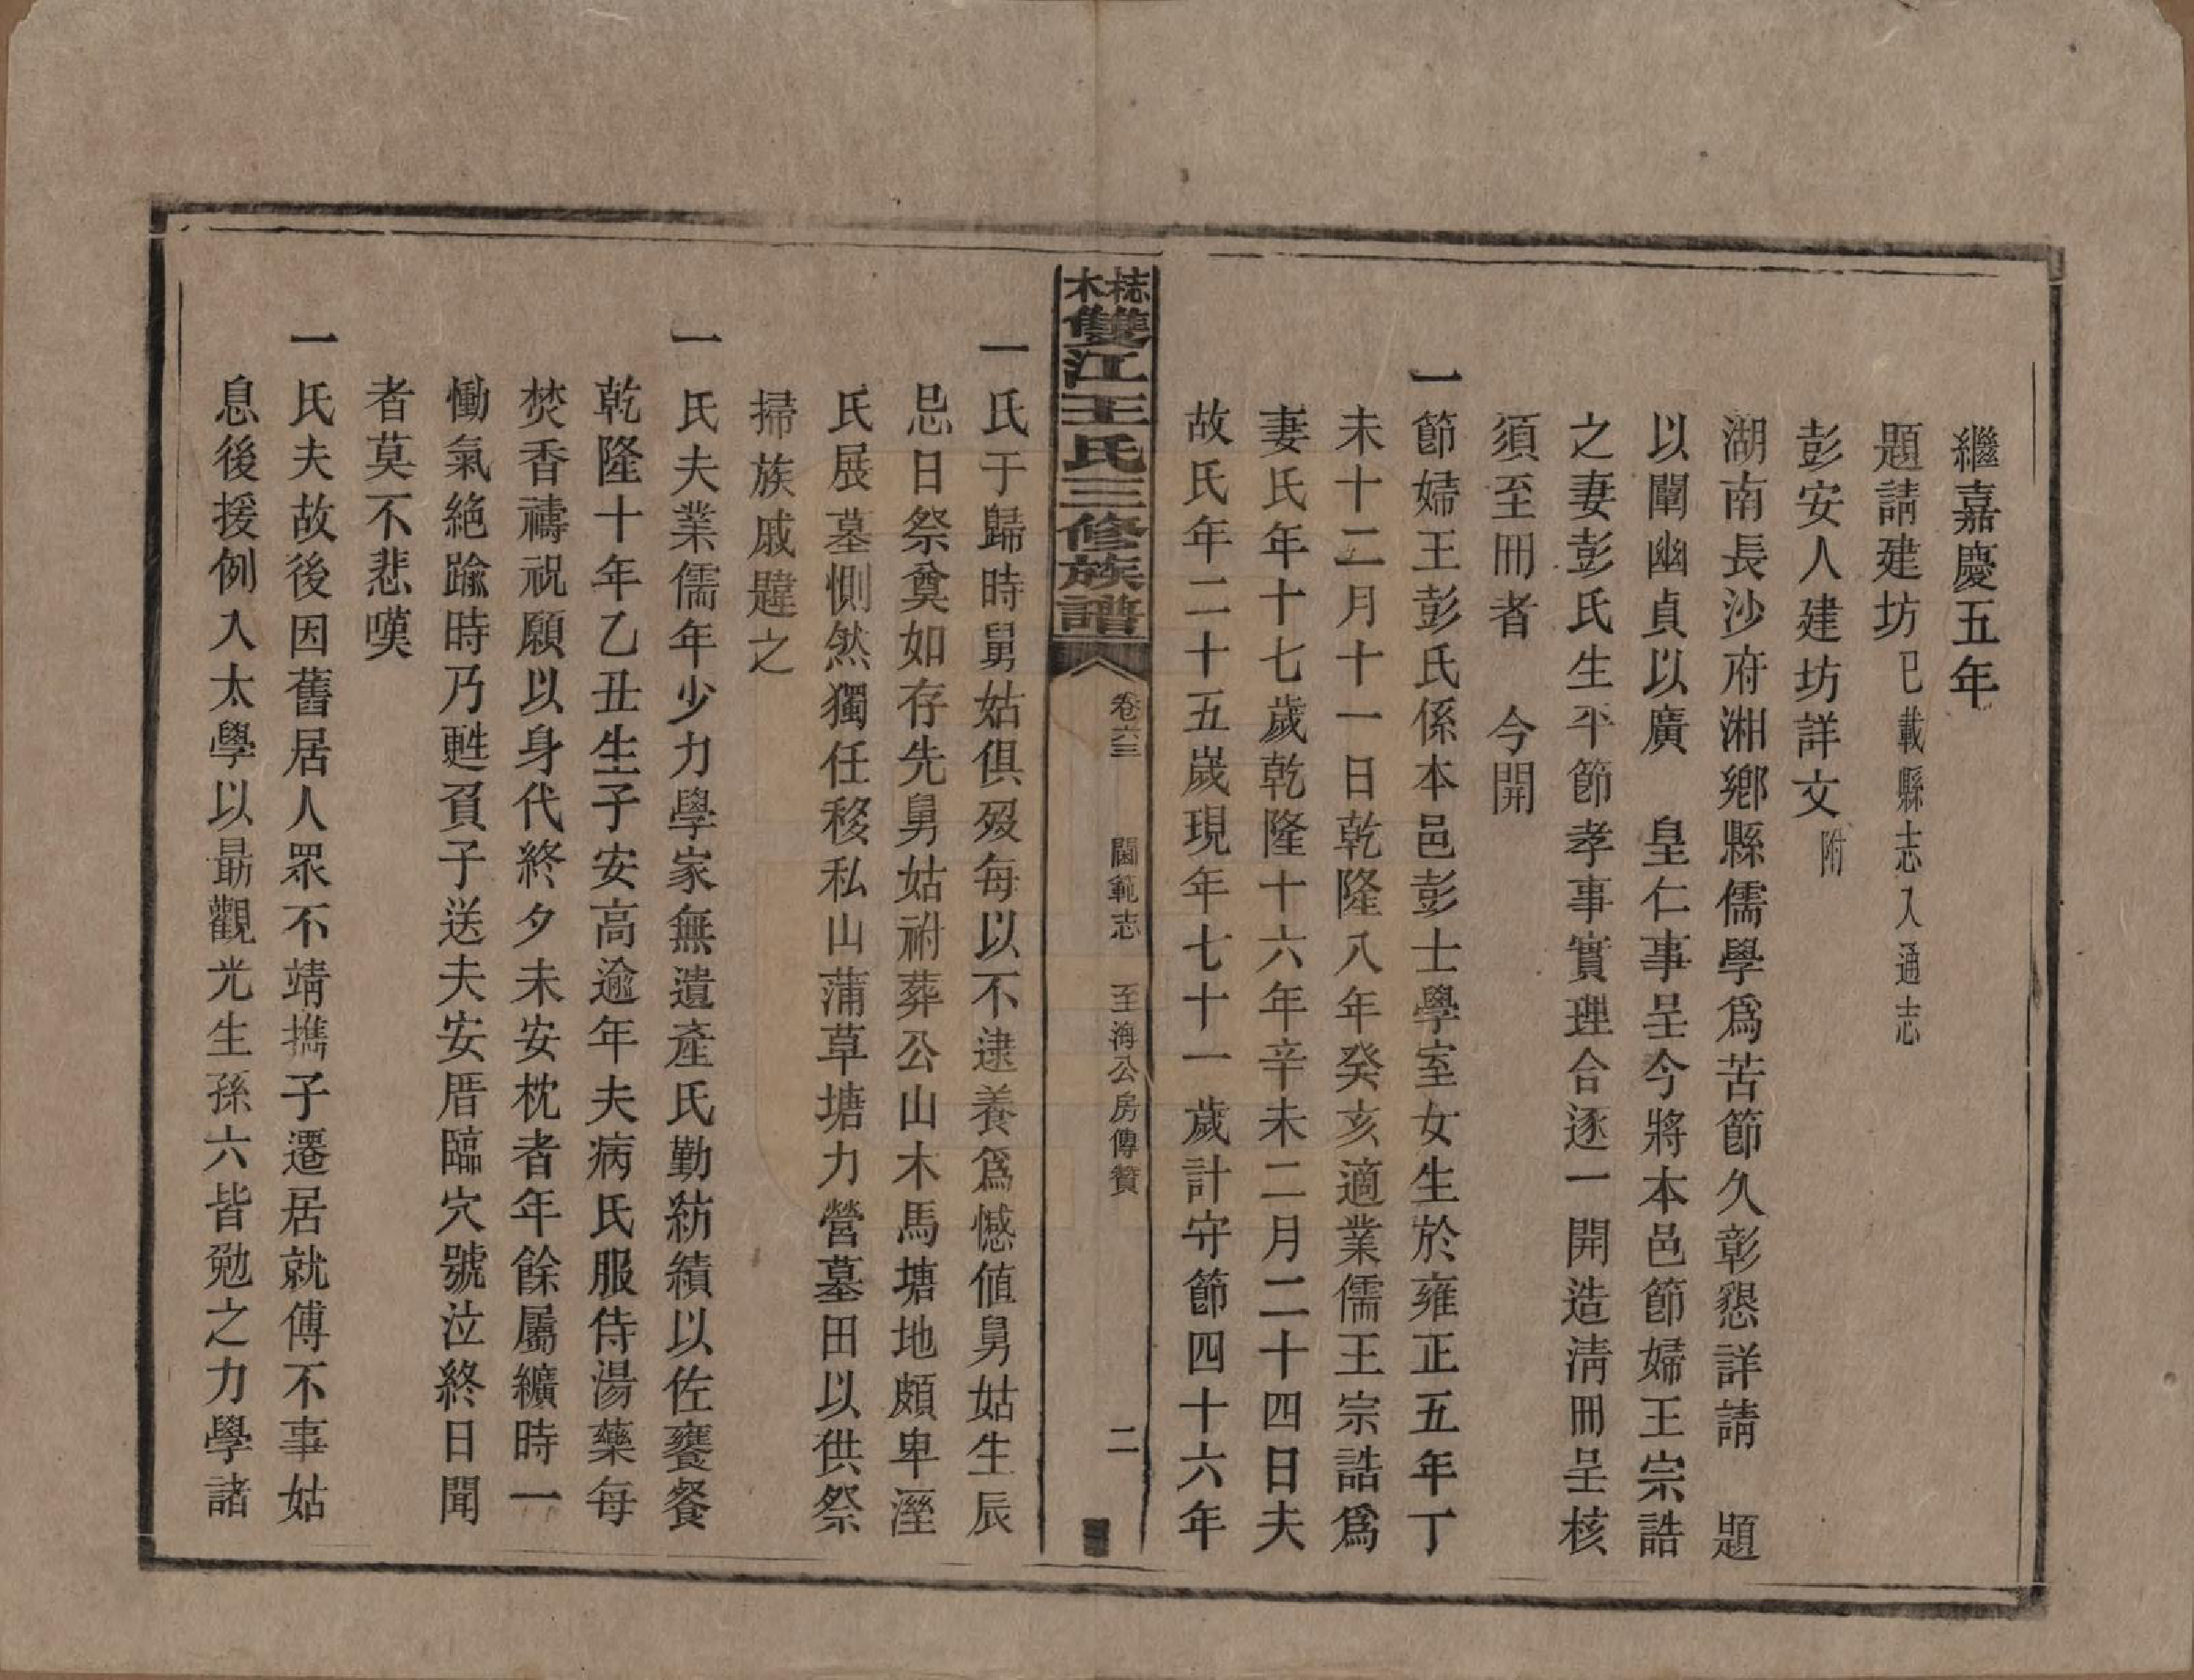 繼嘉慶五年
題請建坊已載縣志入通志
彭安人建坊詳文附
湖南長沙府湘鄉縣儒學爲苦節久彰懇詳請　題
以闡幽貞以廣　皇仁事呈今將本邑節婦王宗誥
之妻彭氏生平節孝事實理合逐一開造清冊呈核
須至冊者　今開
一節婦王彭氏係本邑彭士學室女生於雍正五年丁
未十二月十一日乾隆八年癸亥適業儒王宗誥爲
妻氏年十七歲乾隆十六年辛未二月二十四日夫
故氏年二十五嵗現年七十一歲計守節四十六年
梽木雙江王氏三修族譜　卷六三　閫範志　至海公房傳贊　二
一氏于歸時舅姑俱歿每以不逮養爲憾値舅姑生辰
忌日祭奠如存先舅姑祔葬公山木馬塘地頗卑溼
氏展墓惻然獨任移私山蒲草塘力營墓田以供祭
掃族戚韙之
一氏夫業儒年少力學家無遺產氏勤紡績以佐饔餐
乾隆十年乙丑生子安高逾年夫病氏服侍湯藥每
焚香禱祝願以身代終夕未安枕者年餘屬纊時一
慟氣絕踰時乃甦負子送夫安厝臨穴號泣終日聞
者莫不悲嘆
一氏夫故後因舊居人眾不靖攜子遷居就傅不事姑
息後援例入太學以勗觀光生孫六皆勉之力學諸